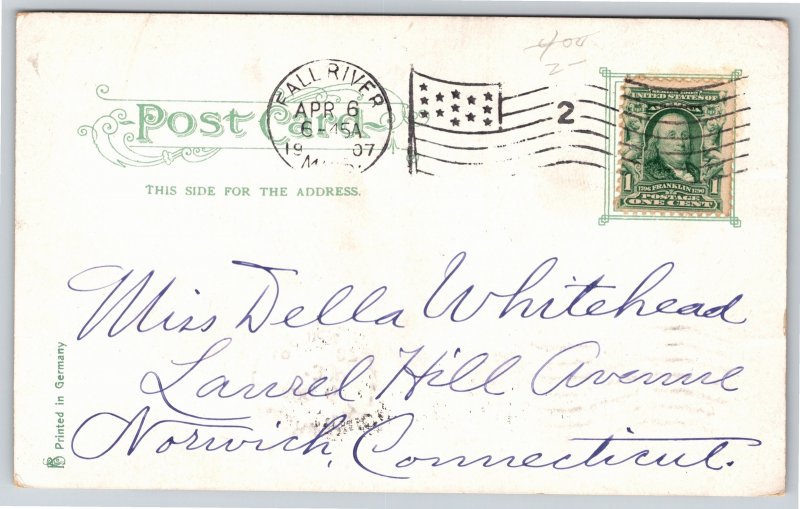 400
2-
FALL RIVER
APR 6
6-45A
19 07
MASS.
2
UNITED STATES OF
FRANKLIN
POSTAGE
1 ONE CENT
Post Card
THIS SIDE FOR THE ADDRESS.
Miss Della Whitehead
Laurel Hill Avenue
Norwich, Connecticut.
Printed in Germany